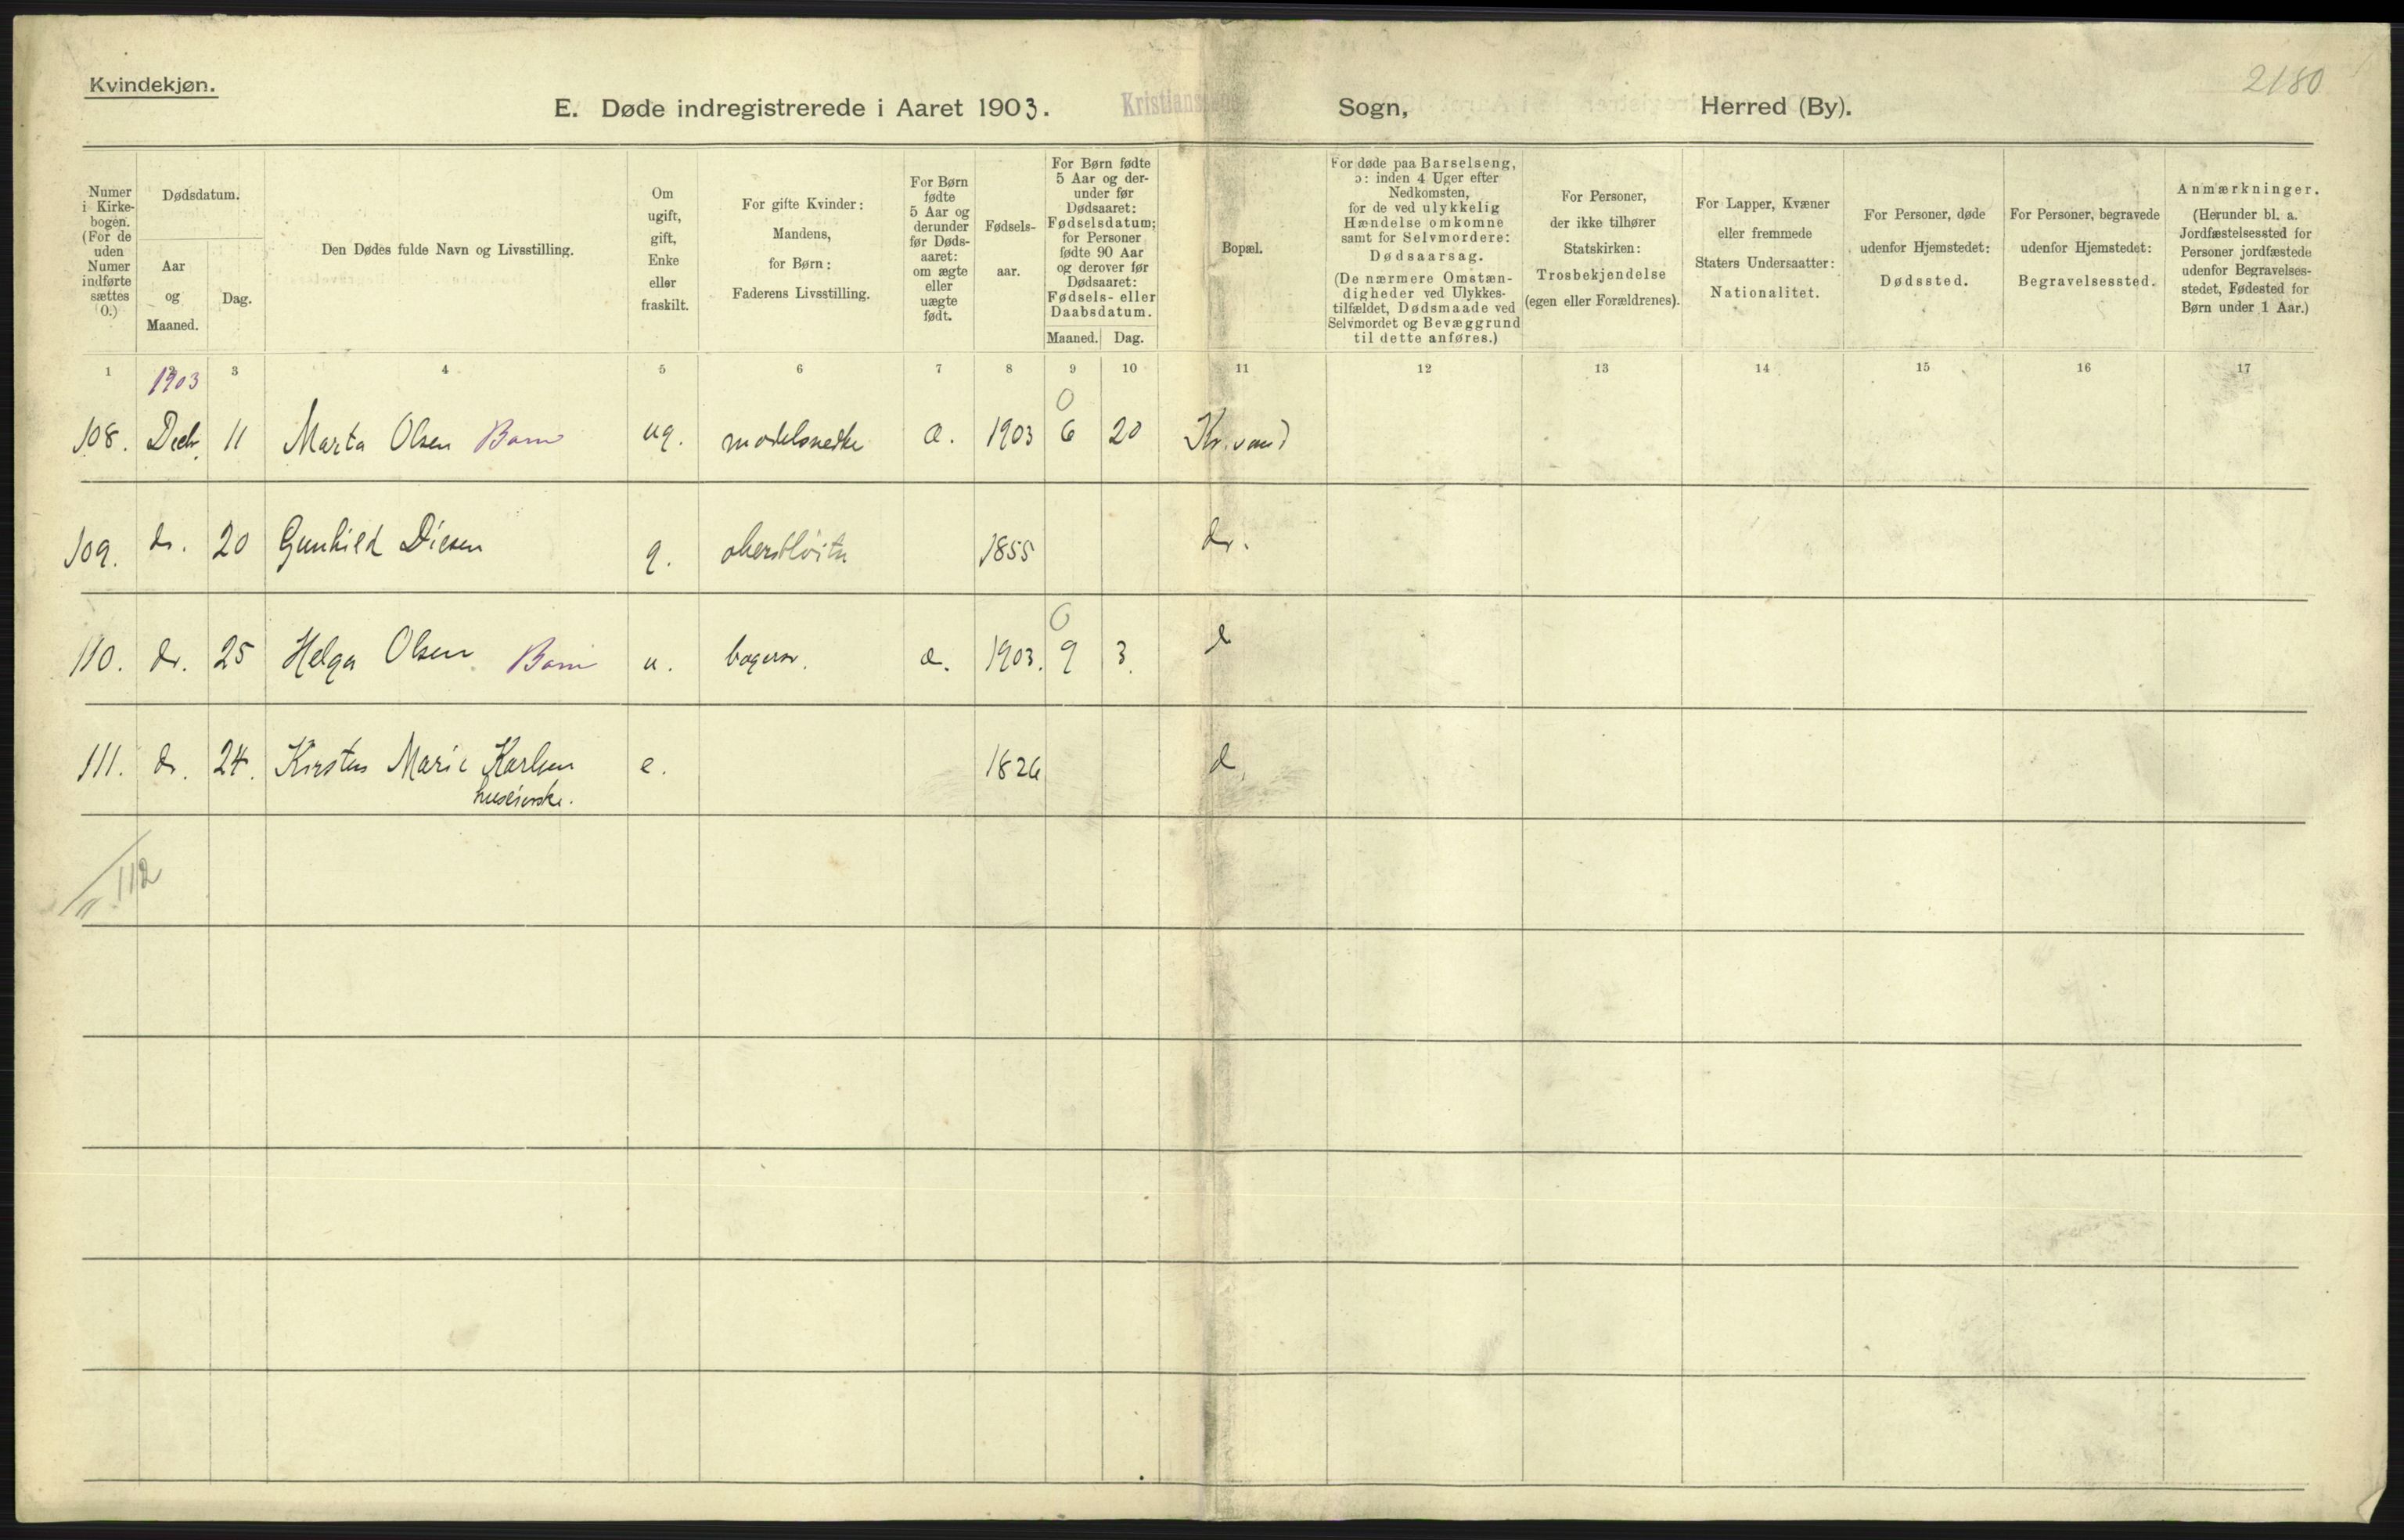 Kvindekjøn.
2180
E. Døde indregistrerede i Aaret 1903. Kristianssand Sogn, Herred (By).
Numer
i Kirke-
bogen.
(For de
uden
Numer
indførte
sættes
0.)
Dødsdatum.
Aar
og
Maaned.
Dag.
Den Dødes fulde Navn og Livsstilling.
Om
ugift,
gift,
Enke
eller
fraskilt.
For gifte Kvinder:
Mandens,
for Børn:
Faderens Livsstilling.
For Børn
fødte
5 Aar og
derunder
før Døds-
aaret:
om ægte
eller
uægte
født.
Fødsels-
aar.
For Børn fødte
5 Aar og der-
under før
Dødsaaret:
Fødselsdatum;
for Personer
fødte 90 Aar
og derover før
Dødsaaret:
Fødsels- eller
Daabsdatum.
Maaned. Dag.
Bopæl.
For døde paa Barselseng,
ɔ: inden 4 Uger efter
Nedkomsten,
for de ved ulykkelig
Hændelse omkomne
samt for Selvmordere:
Dødsaarsag.
(De nærmere Omstæn-
digheder ved Ulykkes-
tilfældet, Dødsmaade ved
Selvmordet og Bevæggrund
til dette anføres.)
For Personer,
der ikke tilhører
Statskirken:
Trosbekjendelse
(egen eller Forældrenes).
For Lapper, Kvæner
eller fremmede
Staters Undersaatter:
Nationalitet.
For Personer, døde
udenfor Hjemstedet:
Dødssted.
For Personer, begravede
udenfor Hjemstedet:
Begravelsessted.
Anmærkninger.
(Herunder bl. a.
Jordfæstelsessted for
Personer jordfæstede
udenfor Begravelses-
stedet, Fødested for
Børn under 1 Aar.)
1 2 3 4 5 6 7 8 9 10 11 12 13 14 15 16 17
1903
0
108. Decbr. 11 Marta Olsen Barn ug. modelsnedke æ. 1903 6 20 Kr.sand
109. do. 20 Gunhild Diesen g. oberstløitn 1855 do.
0
110. do. 25 Helga Olsen Barn u. bagersv. æ. 1903. 9 3. d
111. do. 24. Kirsten Marie Karlsen e. 1826 d
huseierske.
112